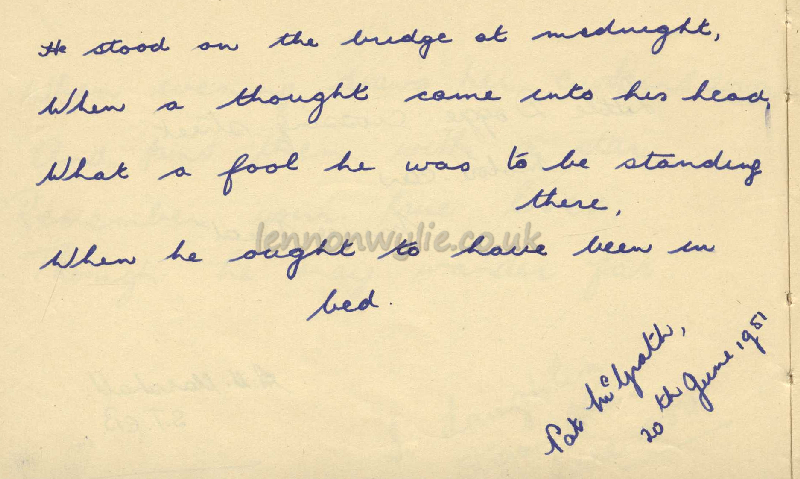 He stood on the bridge at midnight,
When a thought came into his head,
What a fool he was to be standing
there,
lennonwylie.co.uk
When he ought to have been in
bed.
Pat McGrath,
20th June 1951